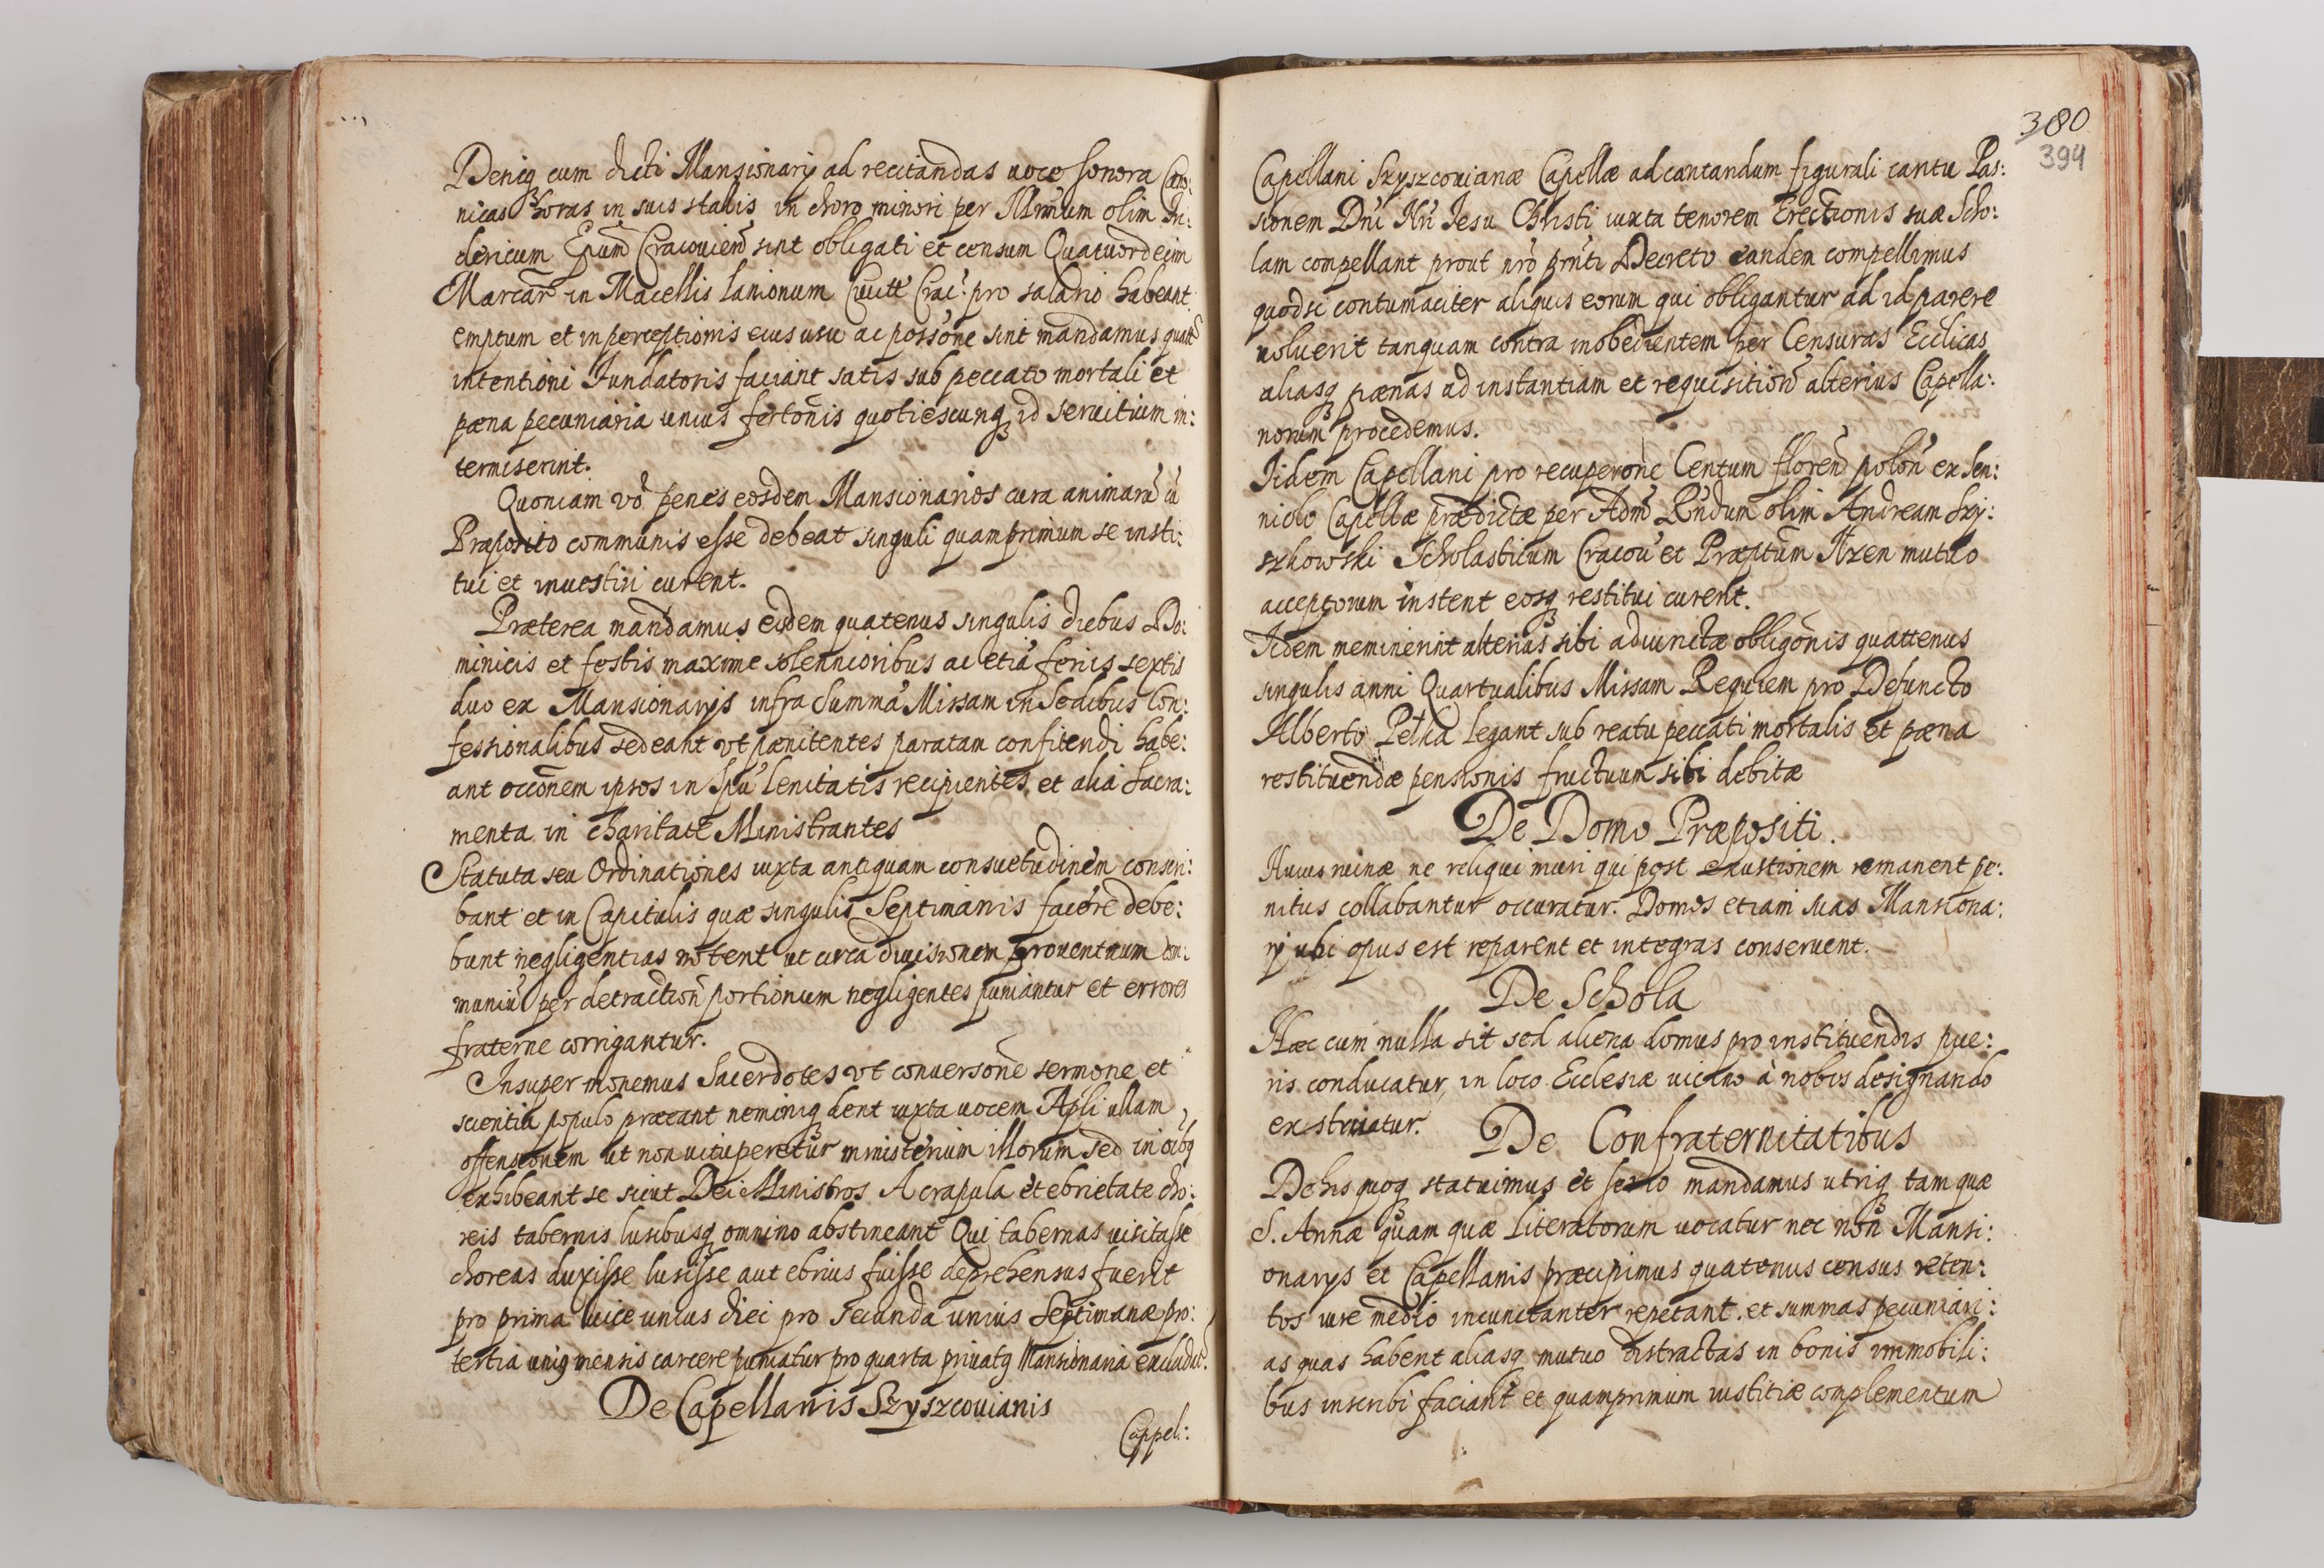 Deniq cum dicti Mansionarij ad recitandas uoce sonora Cano:
nicas horas in suis stallis in choro minori per Illrmum olim Fri:
dericum Epum Cracouien sint obligati et censum Quatuordecim
Marcar in Macellis lanionum Ciuitt Crac: pro salario habeant
emptum et in perceptionis eius usu ac possone sint mandamus quatt
intentioni Fundatoris faciant satis sub peccato mortali et
pæna pecuniaria unius fertonis quotiescunq id seruitium in:
termiserint.
Quoniam vo penes eosdem Mansionarios cura animaru cu
Præposito communis esse debeat singuli quamprimum se insti:
tui et inuestiri curent.
Præterea mandamus eisdem quatenus singulis diebus Do:
minicis et festis maxime solennioribus ac etia ferijs sextis
duo ex Mansionarijs infra Summa Missam in Sedibus Con:
fessionalibus sedeant vt pænitentes paratam confitendi habe:
ant occonem ipsos in Spu lenitatis recipientes et alia Sacra:
menta in charitate Ministrantes
Statuta seu Ordinationes iuxta antiquam consuetudinem conscri:
bant et in Capitulis quæ singulis Septimanis facere debe:
bunt negligentias notent ut circa diuisionem prouentuum com:
muniu per detraction portionum negligentes puniantur et errores
fraterne corrigantur.
Insuper monemus Sacerdotes vt conuersone sermone et
scientia populo præeant neminiq dent iuxta uocem Apli ullam
offensionem ut non uituperetur ministerium illorum sed in oibq
exhibeant se sicut Dei Ministros. A crapula et ebrietate cho:
reis tabernis lusibusq omnino abstineant Qui tabernas uisitasse
choreas duxisse lusisse aut ebrius fuisse deprehensus fuerit
pro prima uice unius diei pro secunda unius Septimanæ pro:
tertia uniq mensis carcere puniatur pro quarta priuatq Mansionaria excludat.
De Capellanis Szyszcouianis
Cappel:
380
394
Capellani Szyszcouianæ Capellæ ad cantandum figurali cantu Pas:
sionem Dni Nri Iesu Christi iuxta tenorem Erectionis suæ Scho:
lam compellant prout nro prnti Decreto eandem compellimus
quodsi contumaciter aliquis eorum qui obligantur ad id parere
noluerit tanquam contra inobedientem per Censuras Ecclicas
aliasq pænas ad instantiam et requisition alterius Capella:
norum procedemus.
Iidem Capellani pro recuperone Centum floren polon ex Scri:
niolo Capellæ prædictæ per Adm Rndum olim Andream Szy:
szkowski Scholasticum Cracou et Præptum Ilzen mutuo
acceptorum instent eosq restitui curent.
Iidem meminerint alterius sibi adiunctæ obligonis quattenus
singulis anni Quartualibus Missam Requiem pro Defuncto
Alberto Petha legant sub reatu peccati mortalis et pæna
restituendæ pensionis fructuum sibi debitæ
De Domo Præpositi.
Huius ruinæ ne reliqui muri qui post exustionem remanent pe:
nitus collabantur occuratur. Domos etiam suas Mansiona:
rij ubi opus est reparent et integras conseruent.
De Schola
Hæc cum nulla sit sed aliena domus pro instituendis pue:
ris conducatur, in loco Ecclesiæ uicino à nobis designando
exstruatur.
De Confraternitatibus
De his quoq statuimus et serio mandamus utriq tam quæ
S. Annæ quam quæ Literatorum uocatur nec non Mansi:
onarijs et Capellanis præcipimus quatenus census reten:
tos iure medio incunctanter repetant. et summas pecuniari:
as quas habent aliasq mutuo distractas in bonis immobili:
bus inscribi faciant et quamprimum iustitiæ complementum